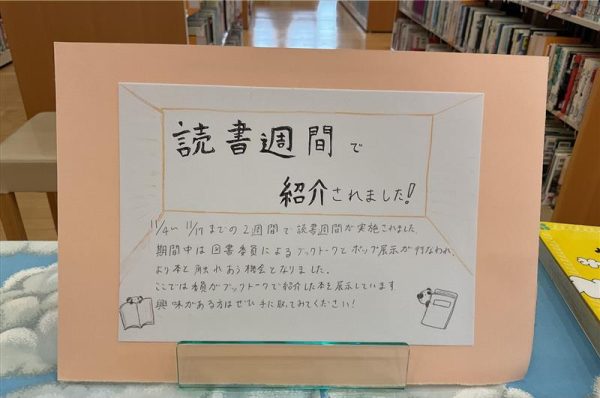 読書週間で
紹介されました!
11/4〜11/17までの2週間で読書週間が実施されました。
期間中は図書委員によるブックトークとポップ展示が行なわれ、
より本と触れある機会となりました。
ここでは委員がブックトークで紹介した本を展示しています
興味がある方はぜひ手に取ってみてください!